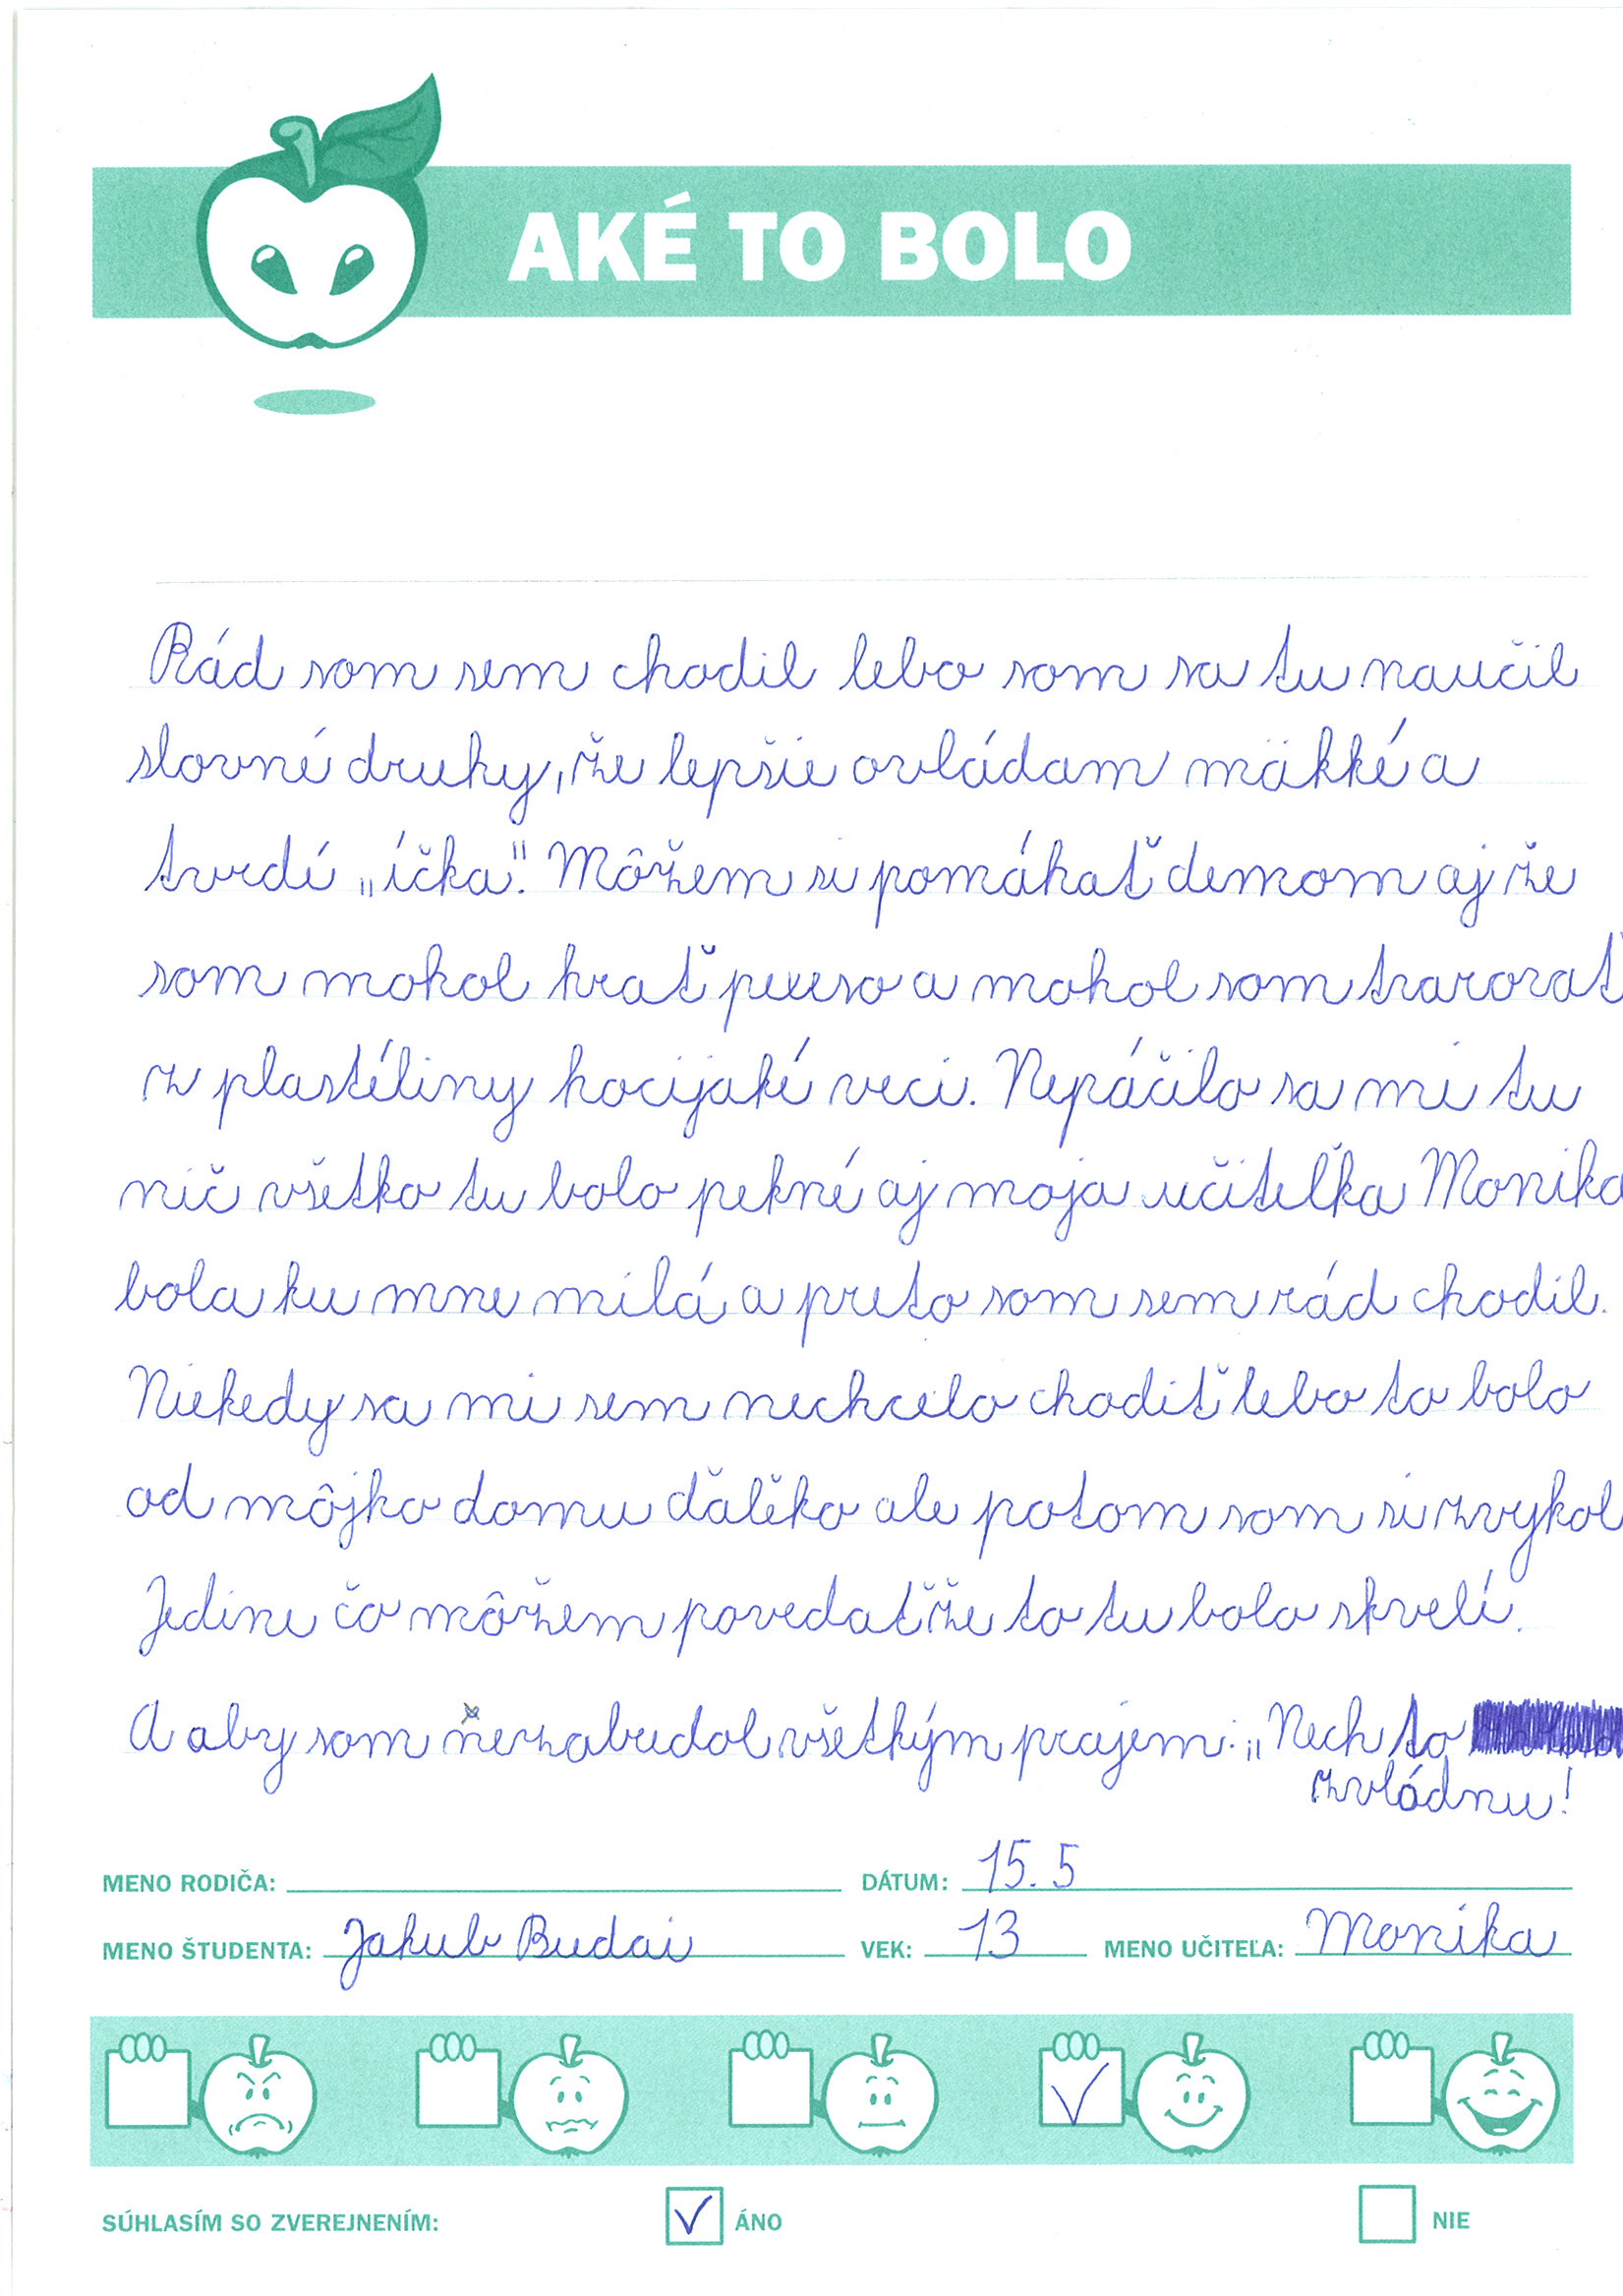 AKÉ TO BOLO
Rád som sem chodil lebo som sa tu naučil
slovné druhy, že lepšie ovládam mäkké a
tvrdé „íčka". Môžem si pomáhať demom aj že
som mohol hrať pexeso a mohol som tvarovať
z plastéliny hocijaké veci. Nepáčilo sa mi tu
nič všetko tu bolo pekné aj moja učiteľka Monika
bola ku mne milá a preto som sem rád chodil.
Niekedy sa mi sem nechcelo chodiť lebo to bolo
od môjho domu ďaľěko ale potom som si zvykol
Jedine čo môžem povedať že to tu bolo skvelí.
A aby som nezabudol všetkým prajem: „Nech to
zvládnu!
MENO RODIČA: DÁTUM: 15. 5
MENO ŠTUDENTA: Jakub Budai VEK: 13 MENO UČITEĽA: Monika
SÚHLASÍM SO ZVEREJNENÍM: ÁNO NIE